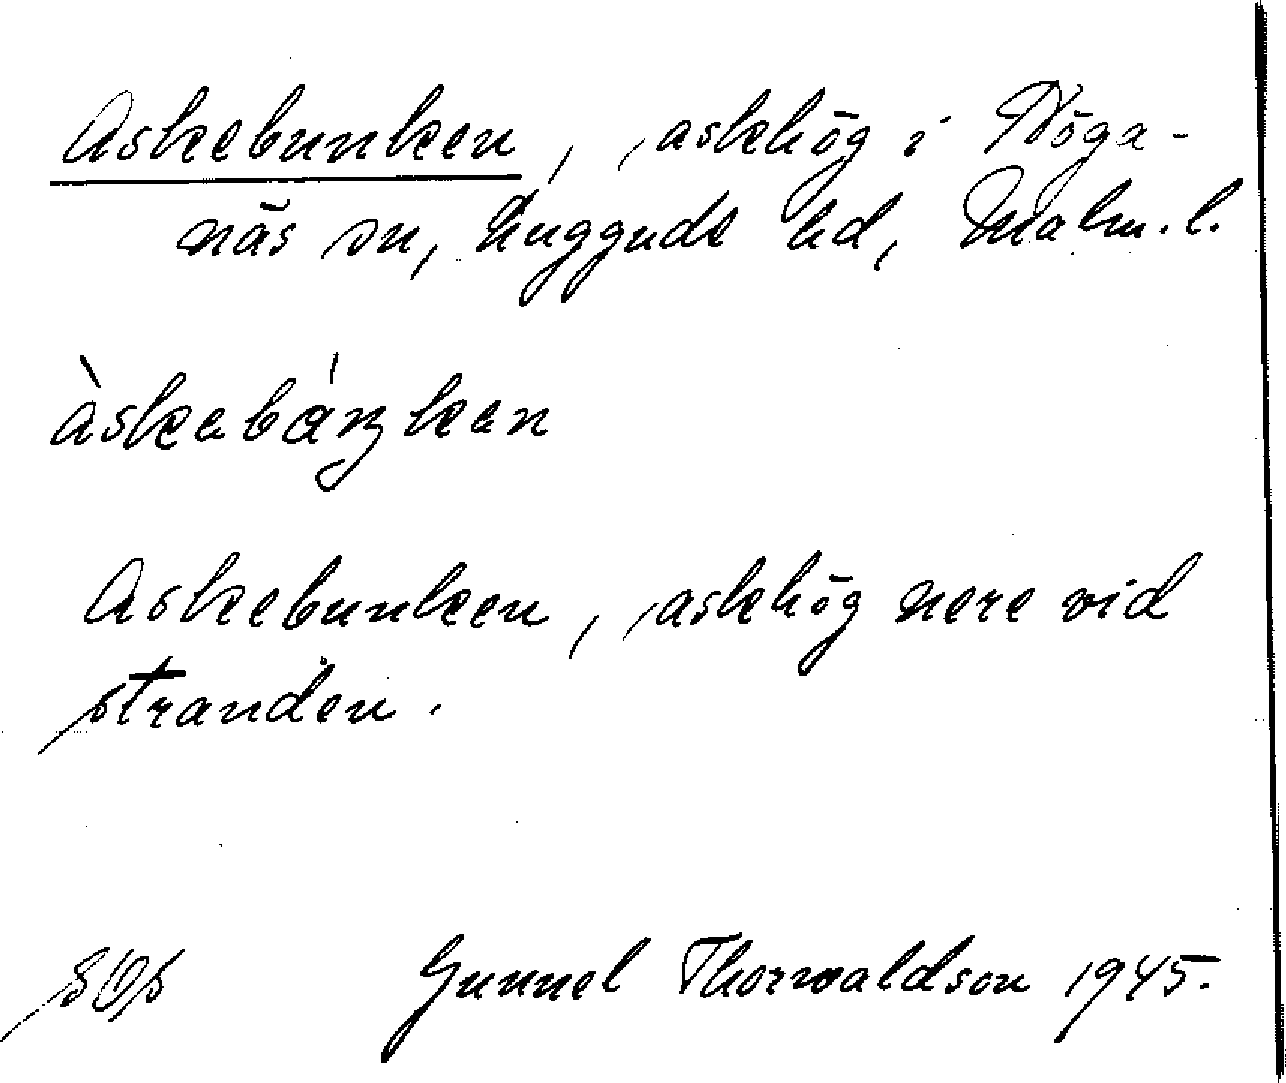 Askebunken, askhög i Höga-
näs sn, Luggude hd, Malm. l.
àskabáŋkan
Askebunken, askhög nere vid
stranden.
Gunnel Thorwaldson 1945.